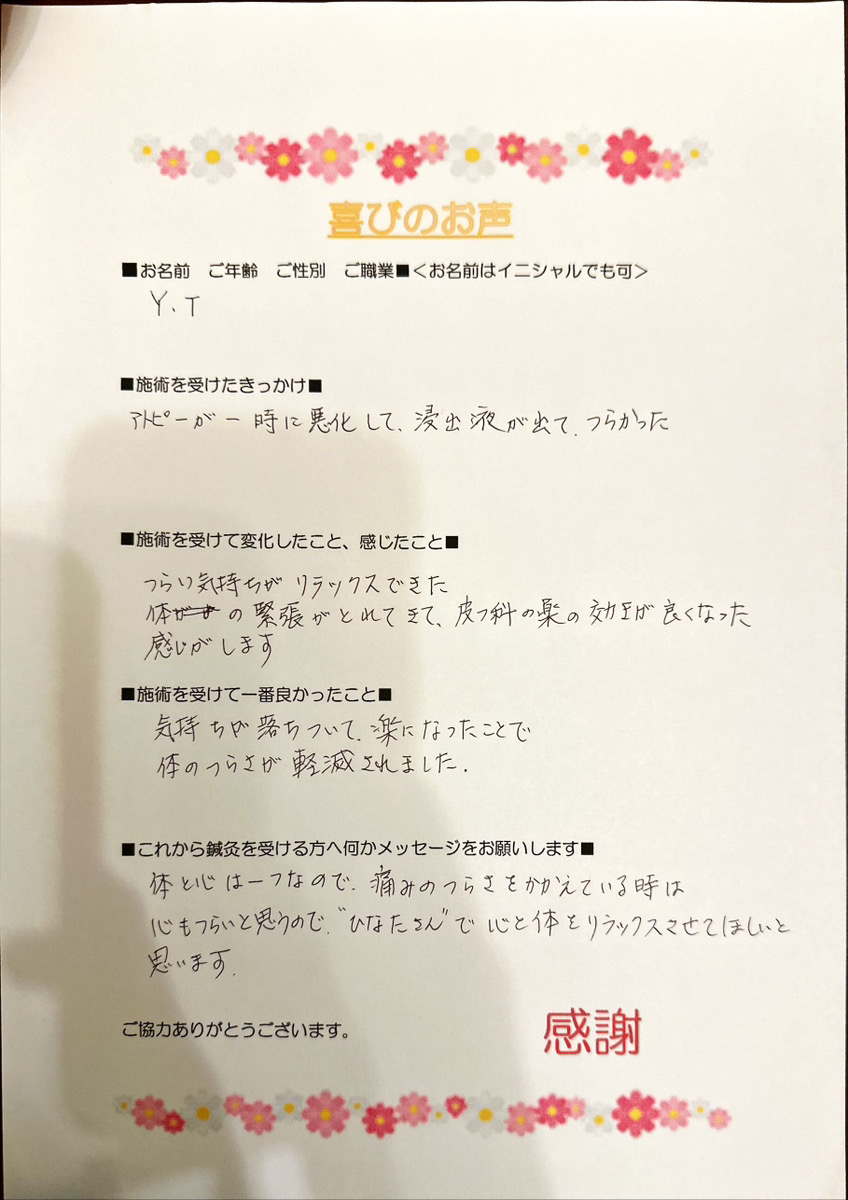 喜びのお声
■お名前　ご年齢　ご性別　ご職業■＜お名前はイニシャルでも可＞
Y.T
■施術を受けたきっかけ■
アトピーが一時に悪化して、浸出液が出て、つらかった
■施術を受けて変化したこと、感じたこと■
つらい気持ちがリラックスできた
体の緊張がとれてきて、皮フ科の薬の効きが良くなった
感じがします
■施術を受けて一番良かったこと■
気持ちが落ちついて、楽になったことで
体のつらさが軽減されました.
■これから鍼灸を受ける方へ何かメッセージをお願いします■
体と心は一つなので、痛みのつらさをかかえている時は
心もつらいと思うので、“ひなたさん”で心と体をリラックスさせてほしいと
思います.
ご協力ありがとうございます。
感謝